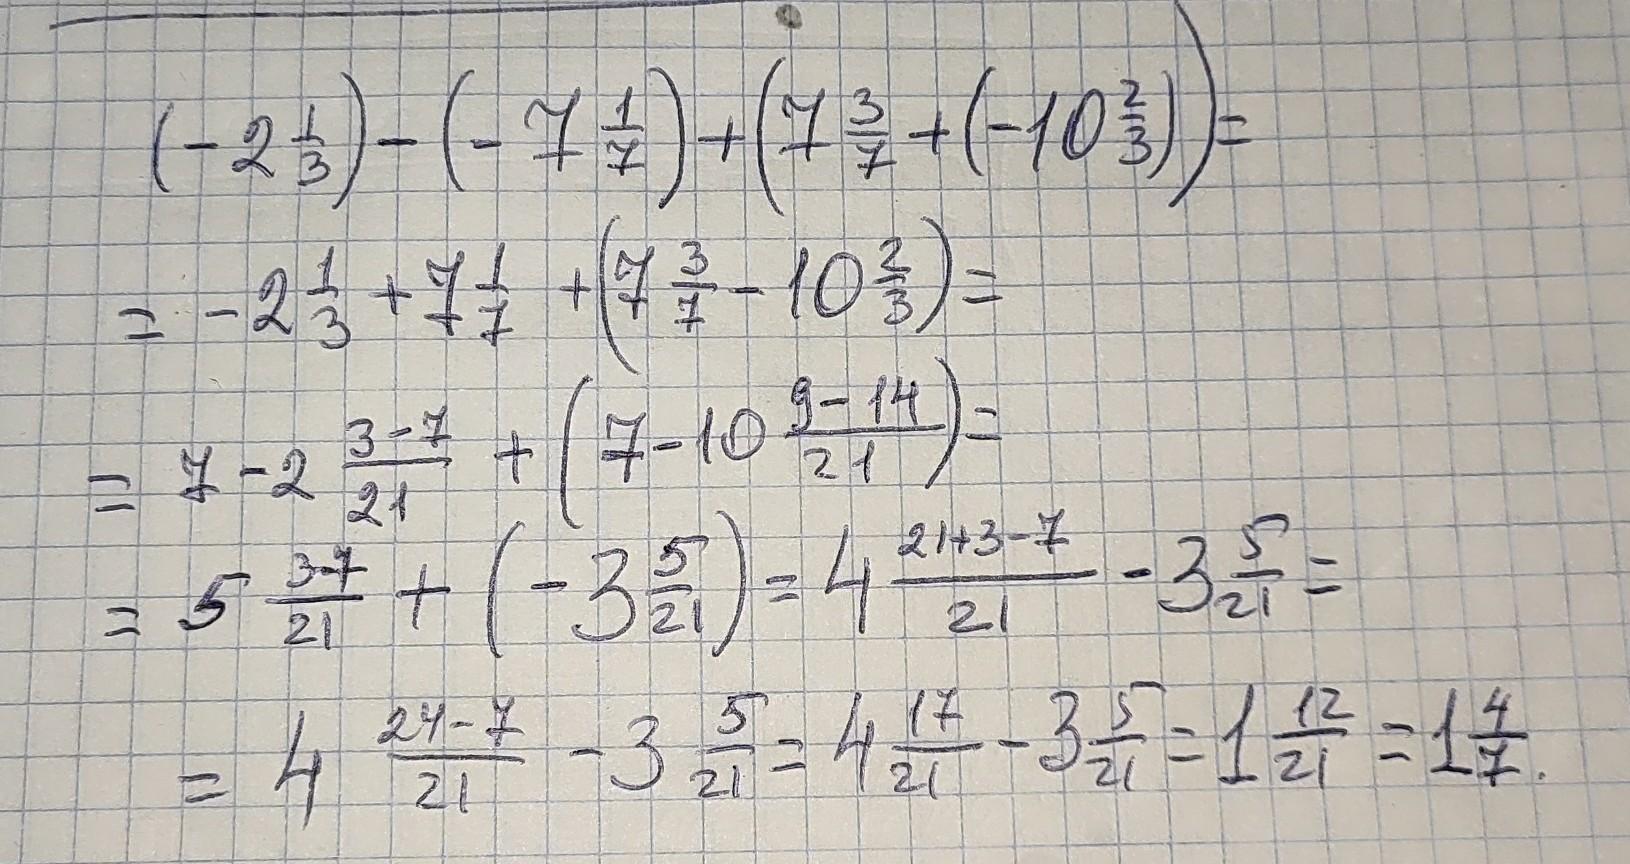 (-2 1/3) - (-7 1/7) + (7 3/7 + (-10 2/3)) =
= -2 1/3 + 7 1/7 + (7 3/7 - 10 2/3) =
= 7 - 2 (3-7)/21 + (7 - 10 (9-14)/21) =
= 5 (3-7)/21 + (-3 5/21) = 4 (21+3-7)/21 - 3 5/21 =
= 4 (24-7)/21 - 3 5/21 = 4 17/21 - 3 5/21 = 1 12/21 = 1 4/7.